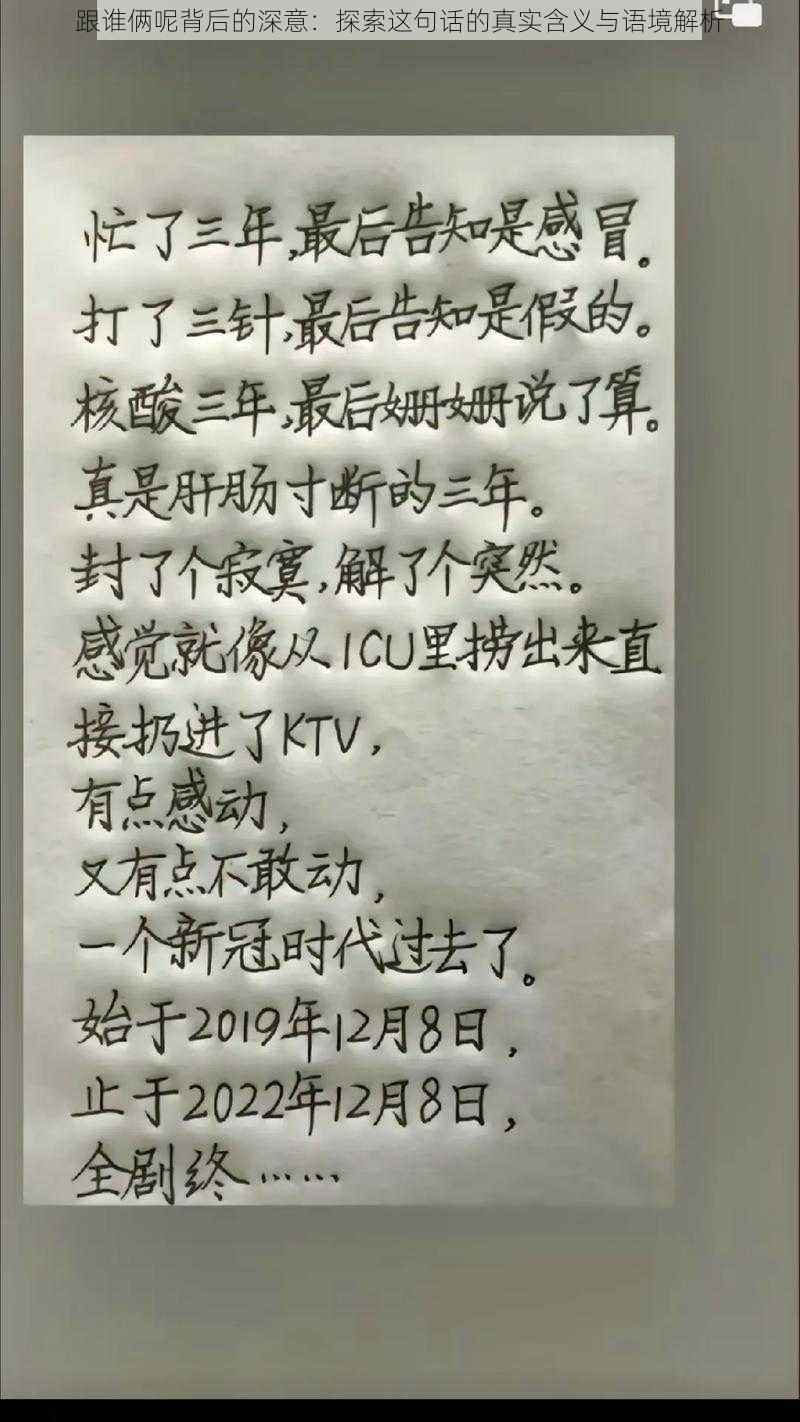 跟谁俩呢背后的深意：探索这句话的真实含义与语境解析
忙了三年,最后告知是感冒。
打了三针,最后告知是假的。
核酸三年,最后姗姗说了算。
真是肝肠寸断的三年。
封了个寂寞,解了个突然。
感觉就像从ICU里捞出来直
接扔进了KTV,
有点感动,
又有点不敢动,
一个新冠时代过去了。
始于2019年12月8日,
止于2022年12月8日,
全剧终……